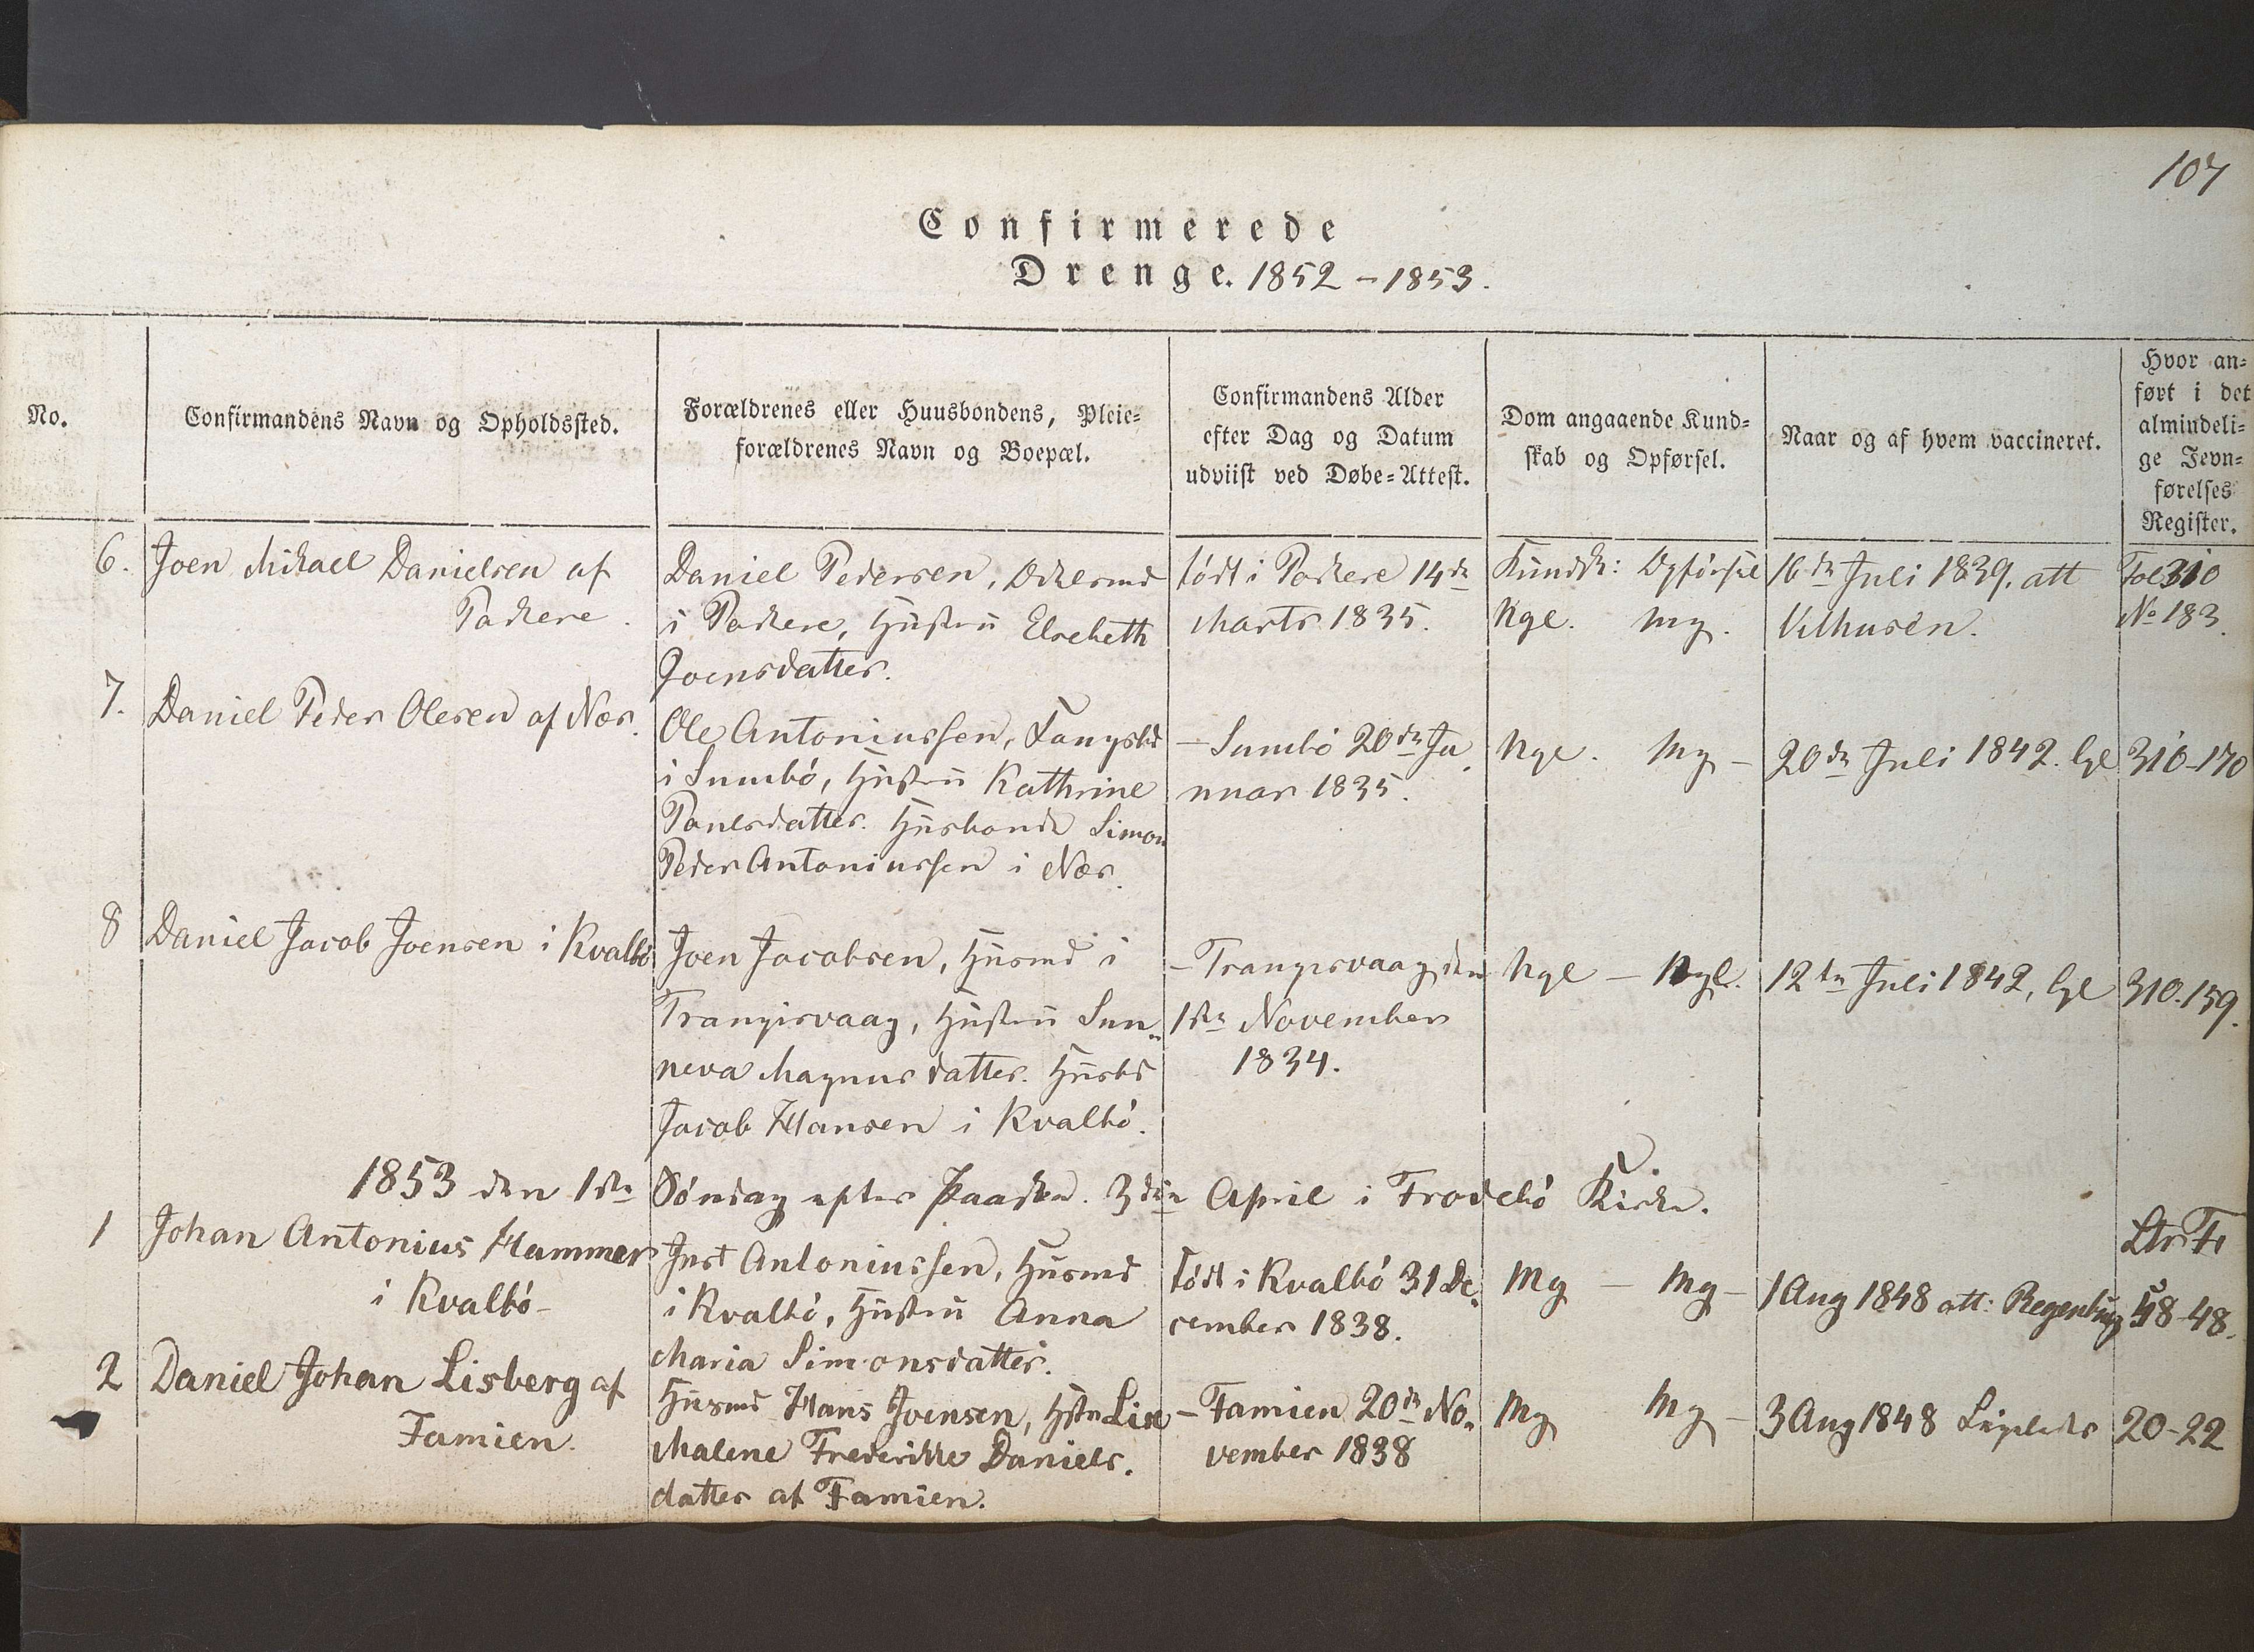 107
Confirmerede
Drenge. 1852 - 1853.
No.
Confirmandens Navn og Opholdssted.
Forældrenes eller Huusbondens, Pleie-
forældrenes Navn og Boepæl.
Confirmandens Alder
efter Dag og Datum
udviist ved Døbe-Attest.
Dom angaaende Kund-
skab og Opførsel.
Naar og af hvem vaccineret.
Hvor an-
ført i det
almindeli-
ge Jevn-
førelses
Register.
6.
Joen Mikael Danielsen af
Porkere.
Daniel Pedersen,
i Porkere, Hustru Elsebeth
Joensdatter.
født i Porkere 14de
Marts 1835.
Kundsk: Opførsel
Ngl. mg.
16de Juli 1839. att
Velhusen.
Fol 310
No 183.
7.
Daniel Peder Olesen af Nær.
Ole Antoniussen,
i Sumbø, Hustru Kathrine
Poulsdatter. Husbonde Simon
Peder Antoniussen i Nær.
- Sumbø 20de Ja
nuar 1835.
Ngl. Mg -
20de Juli 1842. lgl
310-170
8
Daniel Jacob Joensen i Kvalbø
Joen Jacobsen, Husmd i
Trangisvaag, Hustru Sun
neva Magnusdatter. Husbd
Jacob Hansen i Kvalbø.
- Trangisvaag den
1ste November
1834.
Ngl - Ngl.
12te Juli 1842, lgl
310.159.
1853 den 1ste Søndag efter Paaske. 3die April i Frodebø Kirke.
1
Johan Antonius Hammer
i Kvalbø -
Just Antoniussen, Husmd
i Kvalbø, Hustru Anna
Maria Simonsdatter.
født i Kvalbø 31 De
cember 1838.
Mg - Mg -
1 Aug 1848 att: Regenburg
Ltr F
48-48.
2
Daniel Johan Lisberg af
Famien.
Husmd Hans Joensen, Hstr
Malene Frederikke Daniels.
datter af Famien.
- Famien 20de No
vember 1838
Mg Mg -
3 Aug 1848 Ligeledes
20-22